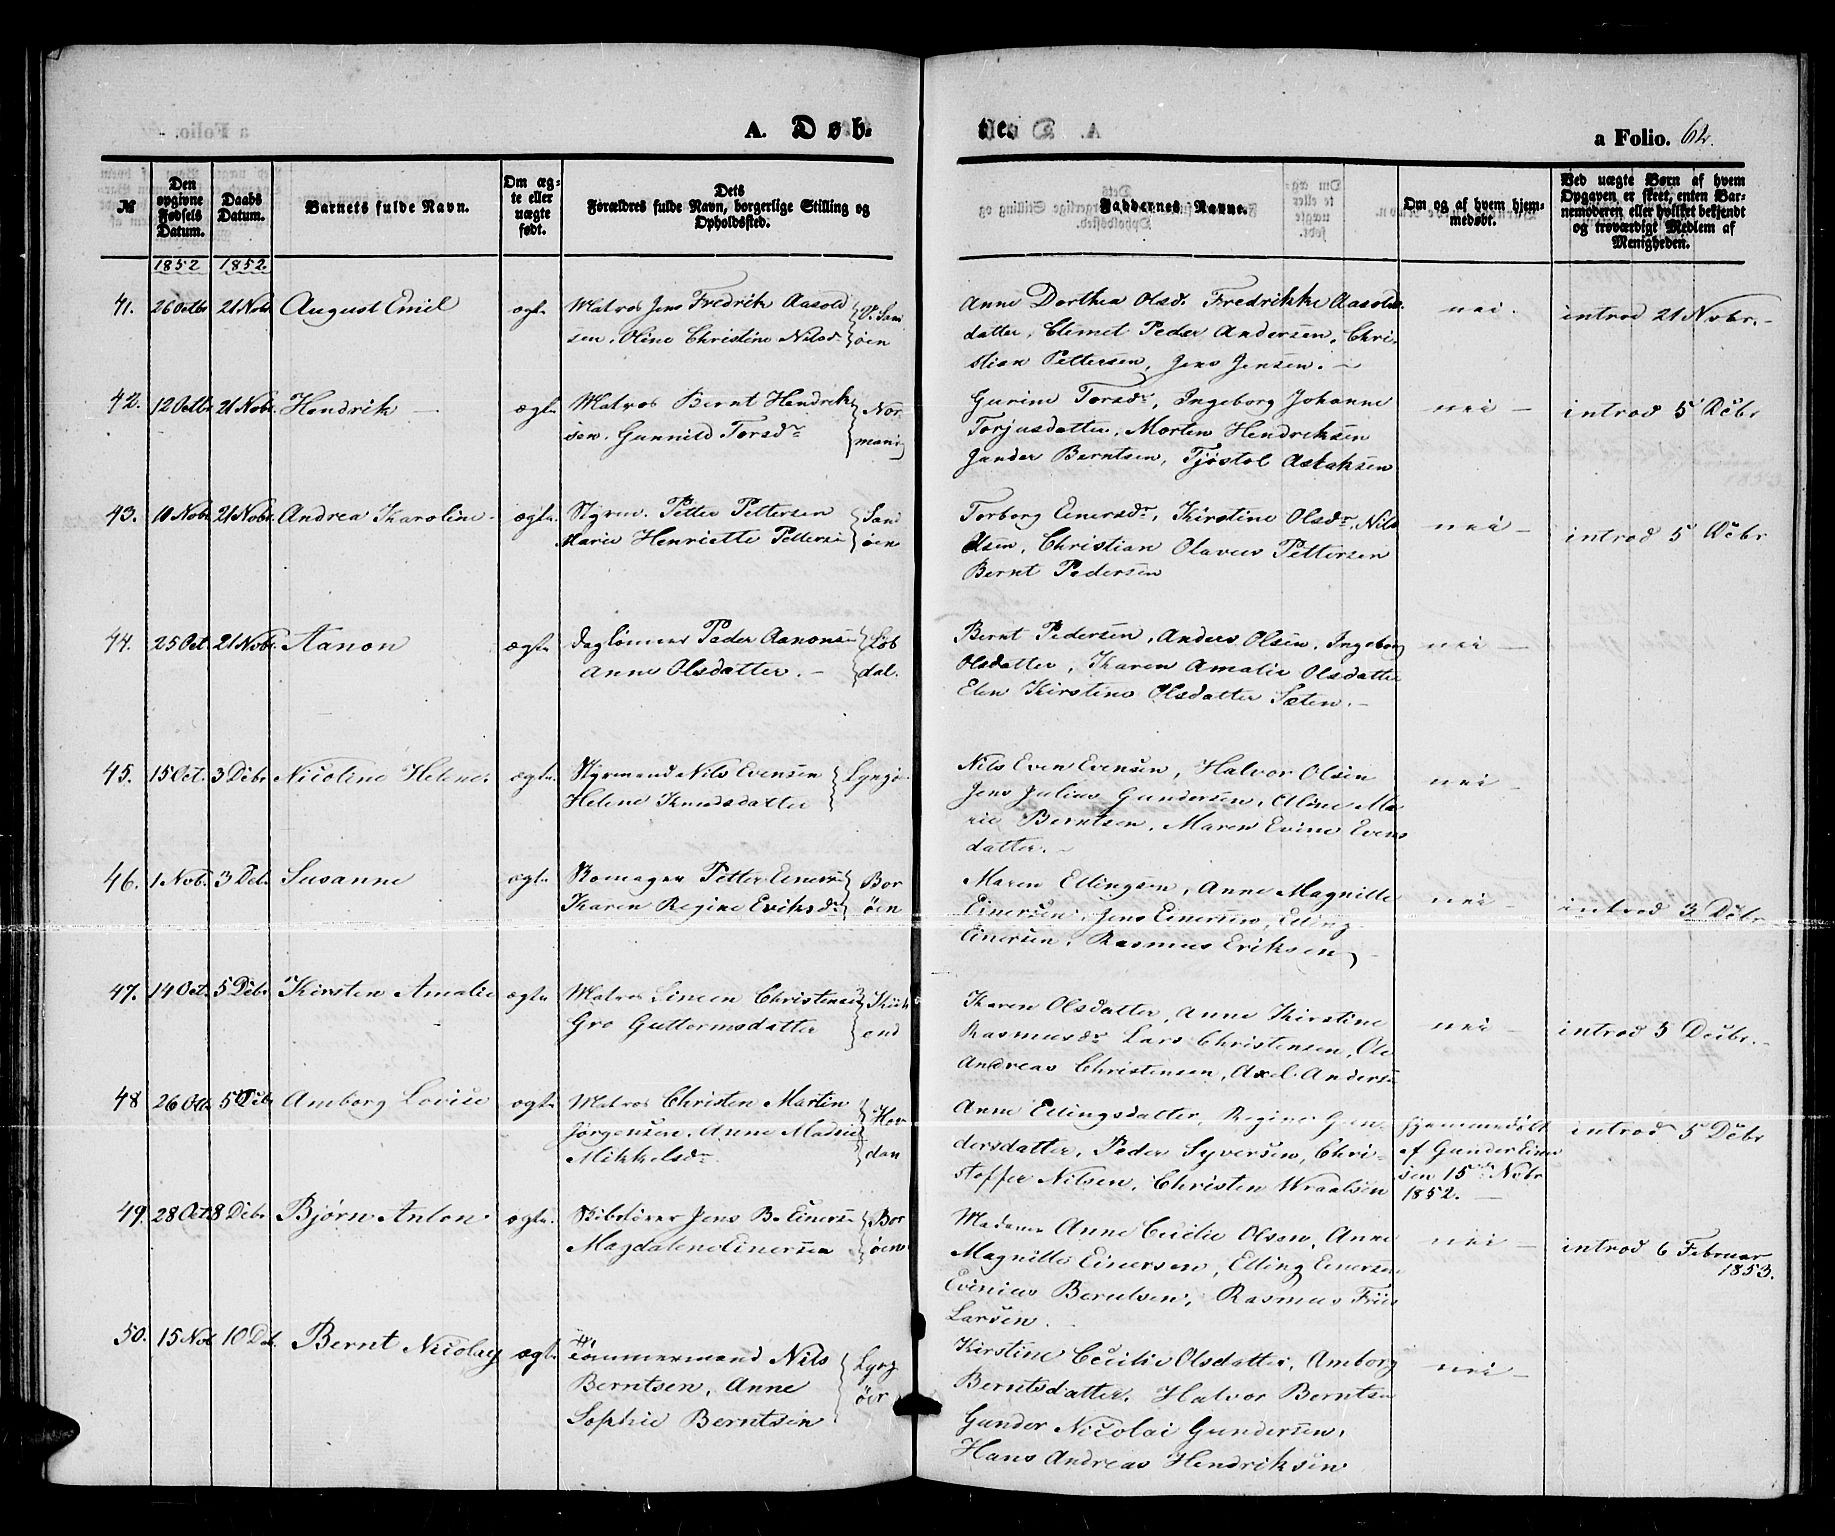 A. Døb-
te.
a Folio. 62.
№
Den opgivne Fødsels Datum.
Daabs Datum.
Barnets fulde Navn.
Om ægte eller uægte født.
Dets Forældres fulde Navn, borgerlige Stilling og Opholdssted.
Faddernes Navne.
Om og af hvem hjemmedøbt.
Ved uægte Børn af hvem Opgaven er skeet, enten Barnemoderen eller hvilket bekjendt og troværdigt Medlem af Menigheden.
1852 1852
41. 26 Octbr 21 Nobr August Emil ægte
Matros Jens Fredrik Aasold
sen, Oline Christine Nilsd.
Sand
øen
Anne Dorthea Olsdr Fredrikke Aasolds
datter, Clemet Peder Andersen, Chri-
stian Pettersen, Jens Jensen.
nei. introd 21 Nvbr.
42. 12 Octbr 21 Nobr Hendrik ægte
Matros Bernt Hendrik
sen, Gunnild Torsdr
Gurine Torsdr, Ingeborg Johanne
Torjusdatter, Morten Hendriksen
Gunder Berntsen, Tjøstol Aslaksen
nei introd 5 Dcbr
43. 10 Nobr 21 Nobr. Andrea Karoline ægte
Styrm. Petter Pettersen
Marie Henriette Petters
Sand
øen
Torborg Einersdr, Kirstine Olsdr, Nils
Olsen, Christian Olaves Pettersen
Bernt Pedersen
nei introd 5 Dcbr
44. 25 Oct 21 Nobr. Aanon ægte
Daglønner Peder Aanons
Anne Olsdatter.
dal.
Bernt Pedersen, Anders Olsen, Ingeborg
Olsdatter, Karen Amalie Olsdatter
Elen Kirstine Olsdatter Sæten.
nei
45. 15 Oct. 3 Dcbr Nicoline Helene ægte
Styrmand Nils Evensen
Helene Knudsdatter
Lyngø
Nils Even Evensen, Halvor Olsen
Jens Julius Gundersen, Oline Ma-
rie Berntsen, Maren Evine Evens
datter.
nei
46. 1 Nob. 3 Deb. Susanne ægte
Skomager Petter Einers
Karen Regine Eriksdr
Bor
øen
Maren Ellingsen, Anne Magnille
Einersen, Jens Einersen, Elling
Einersen, Rasmus Eriksen
nei introd 3 Dcbr
47. 14 Oct. 5 Dcbr Kirsten Amalie ægte
Matros Simen Christens
Gro Guttormsdatter
Karen Olsdatter, Anne Kirstine
Rasmusdr Lars Christensen, Ole
Andreas Christensen, Axel Anders
nei introd 5 Decbr.
48 26 Oct 5 Dcbr Amborg Lovise ægte
Matros Christen Martin
Jørgensen, Anne
Mikkelsdr
Anne Ellingsdatter, Regine Gun-
dersdatter, Peder Syversen, Chri-
stoffer Nilsen, Christen Wraalsen
Hjemmedøbt
af Gunder Einer
sen 15de Nobr
1852.
introd 5 Dcbr
49. 28 Oct. 8 Dcbr Bjørn Anton ægte
Skibsfører Jens B. Einers
Magdalene Einersen
Bor
øen
Madame Anne Cecilie Olsen, Anne
Magnille Einersen, Elling Einersen
Evinius Berulsen, Rasmus Friis
Larsen.
nei introd 6 Februar
1853.
50. 15 Nob 10 Deb. Bernt Nicolay ægte
Tømmermand Nils
Berntsen, Anne
Sophie Berntsen
Lyng
øer
Kirstine Cecilie Olsdatter, Amborg
Berntsdatter, Halvor Bernts
Gunder Nicolai Gundersen,
Hans Andreas Hendriksen
nei